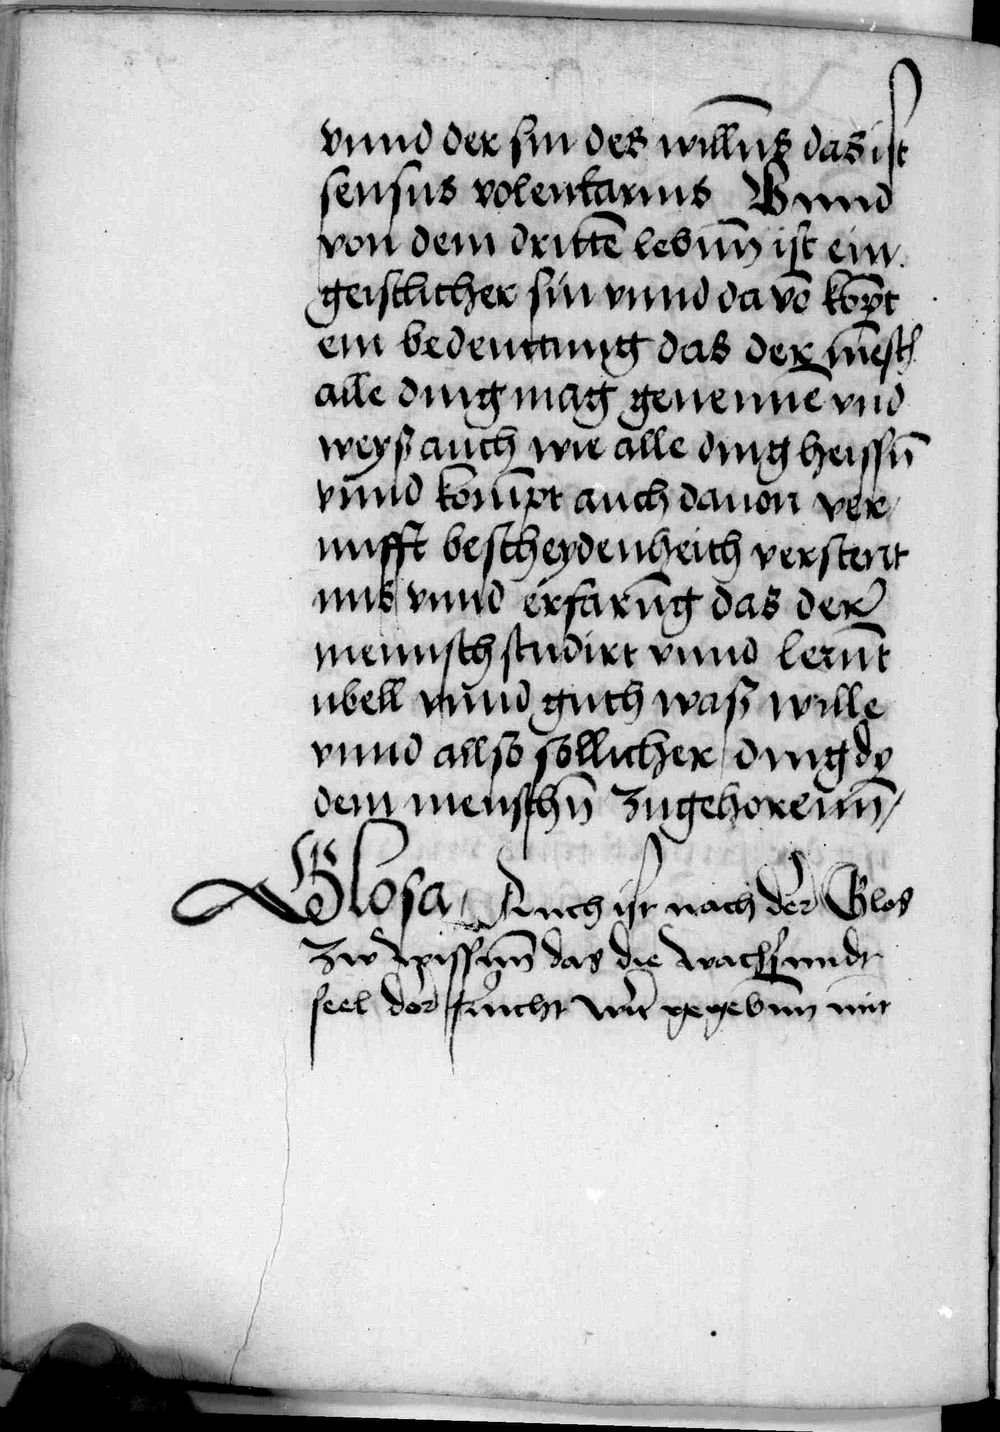 vnnd der sin des willn̄s das ist
sensus volentarius Vnnd
von dem drittē lebun̄ ist ein
geistlicher sin vnnd da vō kōpt
ein bedeuttung das der mēsch
alle ding mag genennē vnd
weyß auch wie alle ding heissn̄
vnnd kompt auch dauon ver
nufft bescheydenheith verstent
nus vnnd erfarūng das der
mennsch studirt vnnd lernt
ubell vnnd guth waß wille
vnnd allso sollicher ding dy
dem menschn̄ zugehorenn̄
Glosa Auch ist nach der Glos
zw wissenn̄ das die wachssundt
seel der frucht wirt gegebunn mit